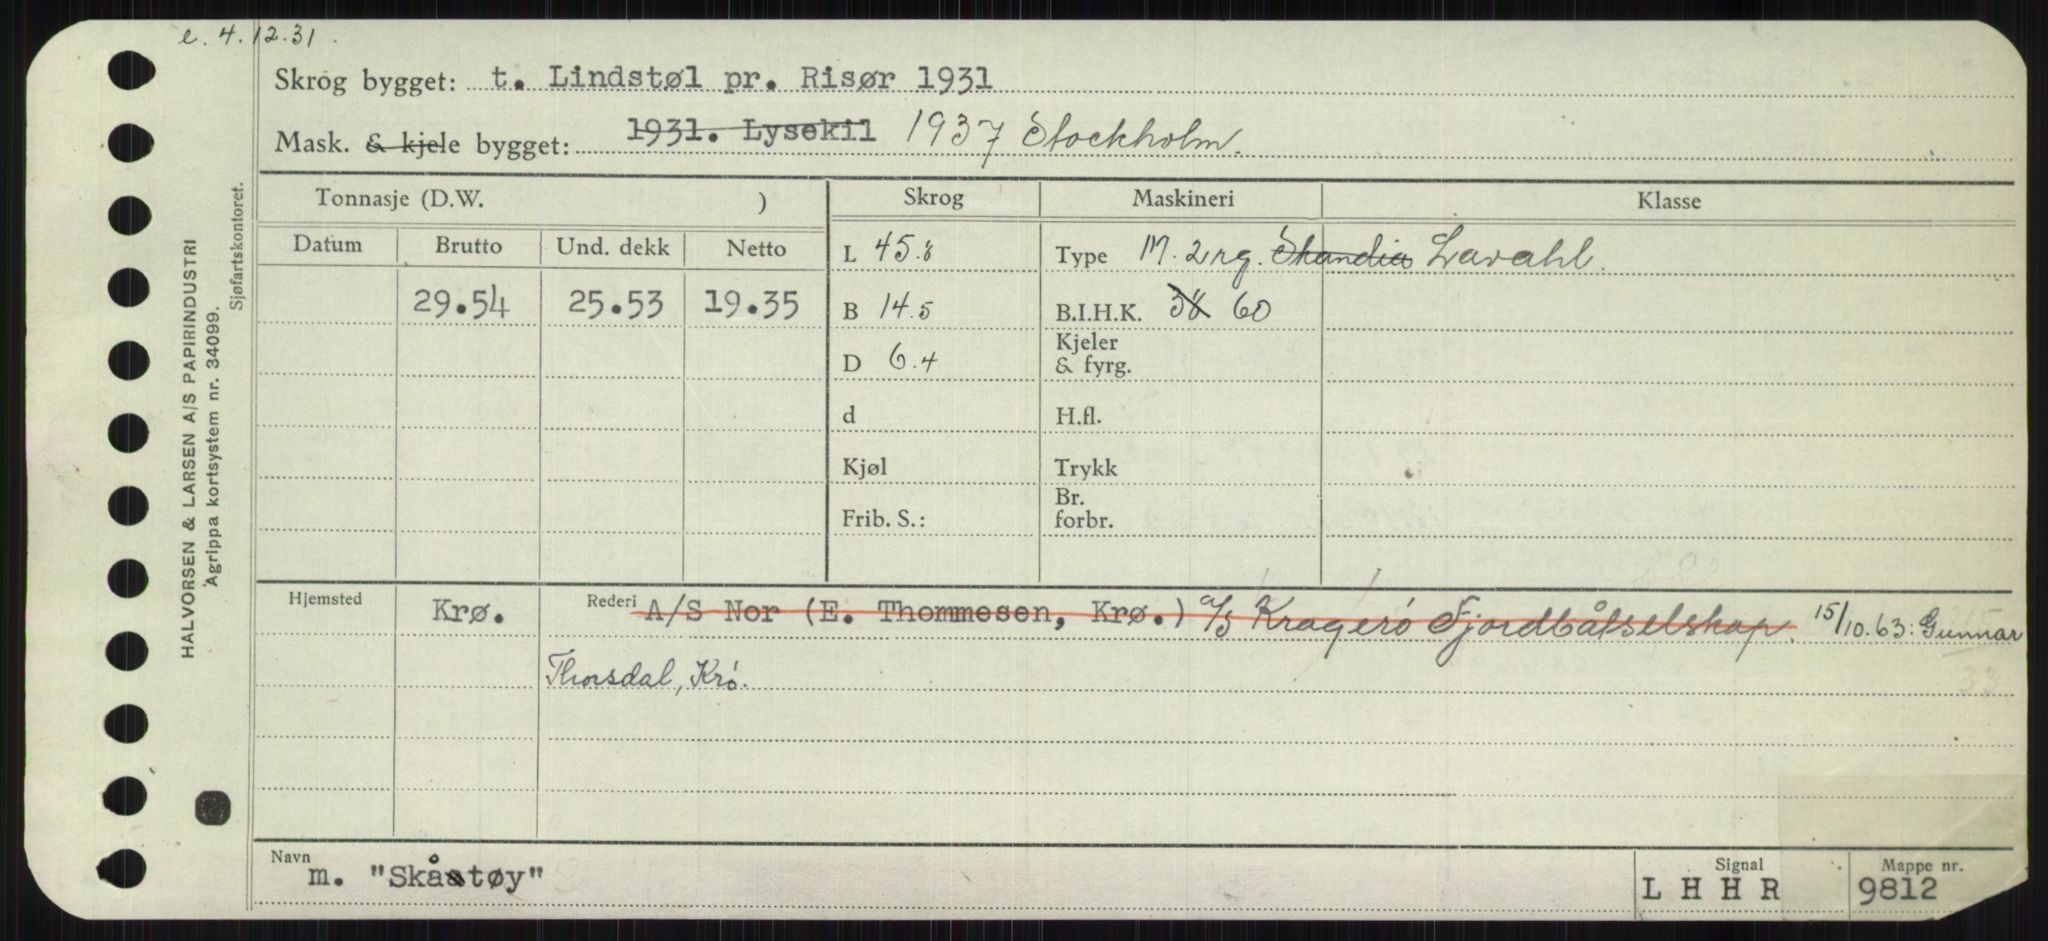 e. 4.12.31.
Skrog bygget: t. Lindstøl pr. Risør 1931
Mask. & kjele bygget: 1931. Lysekil 1937 Stockholm.
Tonnasje (D.W. ) Skrog Maskineri Klasse
Datum Brutto Und. dekk Netto
L 45.8 Type M. 2 rg. Skandia
29.54 25.53 19.35 B 14.5 B.I.H.K. 38 60
D 6.4 Kjeler & fyrg.
d H.fl.
Kjøl Trykk
Frib. S.: Br. forbr.
Hjemsted Krø. Rederi A/S Nor (E. Thommesen, Krø.) A/S Kragerö Fjordbåtselskap. 15/10.63: Gunnar
Thorsdal, Krö.
Navn m. "Skåtøy" Signal LHHR Mappe nr. 9812
HALVORSEN & LARSEN A/S PAPIRINDUSTRI
Agrippa kortsystem nr. 34099.
Sjøfartskontoret.